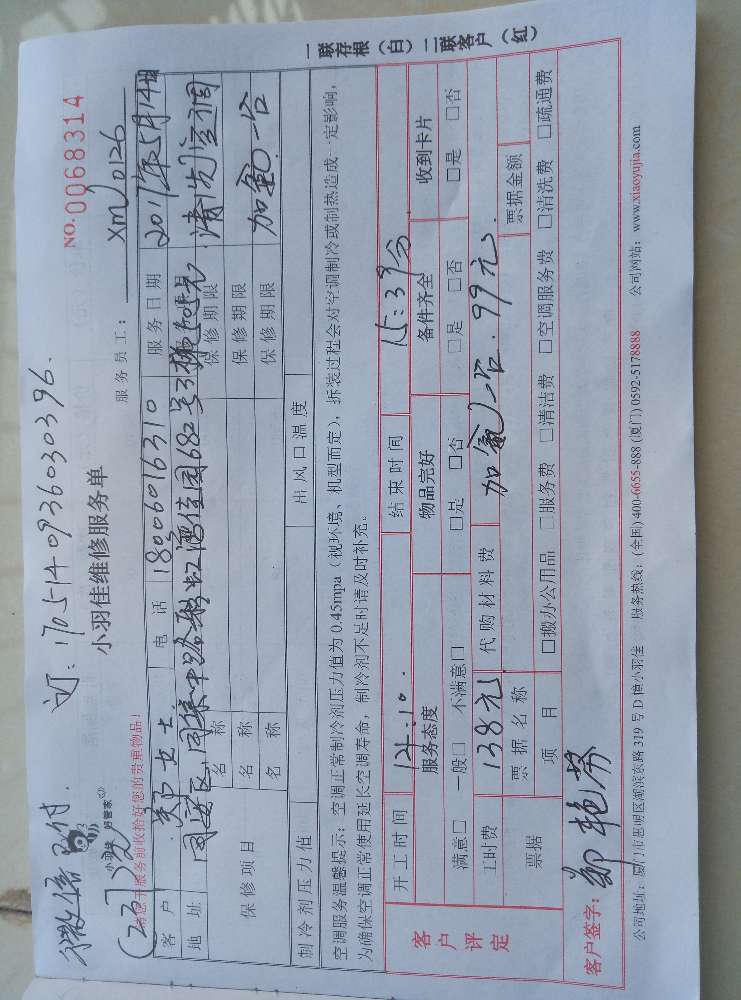 微信已付. 订:1705140936030396.
(237元)
小羽佳 好管家
小羽佳维修服务单
NO.0068314
服务员工: XM0126
请您于服务前收拾好您的贵重物品!
客户 郑女士. 电话 18006016310 服务日期 2017年5月14日
地址 同安区,同集中路彩虹湾佳园682号
保修项目
名称 保修期限 清洗空调
名称 保修期限
名称 保修期限 加氟一台
制冷剂压力值 出风口温度
空调服务温馨提示:空调正常制冷剂压力值为 0.45mpa(视环境、机型而定),拆装过程会对空调制冷或制热造成一定影响,
为确保空调正常使用延长空调寿命,制冷剂不足时请及时补充。
客户评定
开工时间 14:10. 结束时间 15:39分
服务态度 物品完好 备件齐全 收到卡片
满意□ 一般□ 不满意□ □是 □否 □是 □否 □是 □否
工时费 138元 代购材料费 加氟一台.99元.
票据 票据名称 票据金额
项目 □搬办公用品 □服务费 □清洁费 □空调服务费 □清洗费 □疏通费
客户签字: 郑艳芬
公司地址:厦门市思明区湖滨东路 319 号 D 幢小羽佳 服务热线:(全国) 400-6655-888 (厦门) 0592-5178888 公司网站:www.xiaoyujia.com
一联存根(白)二联客户(红)